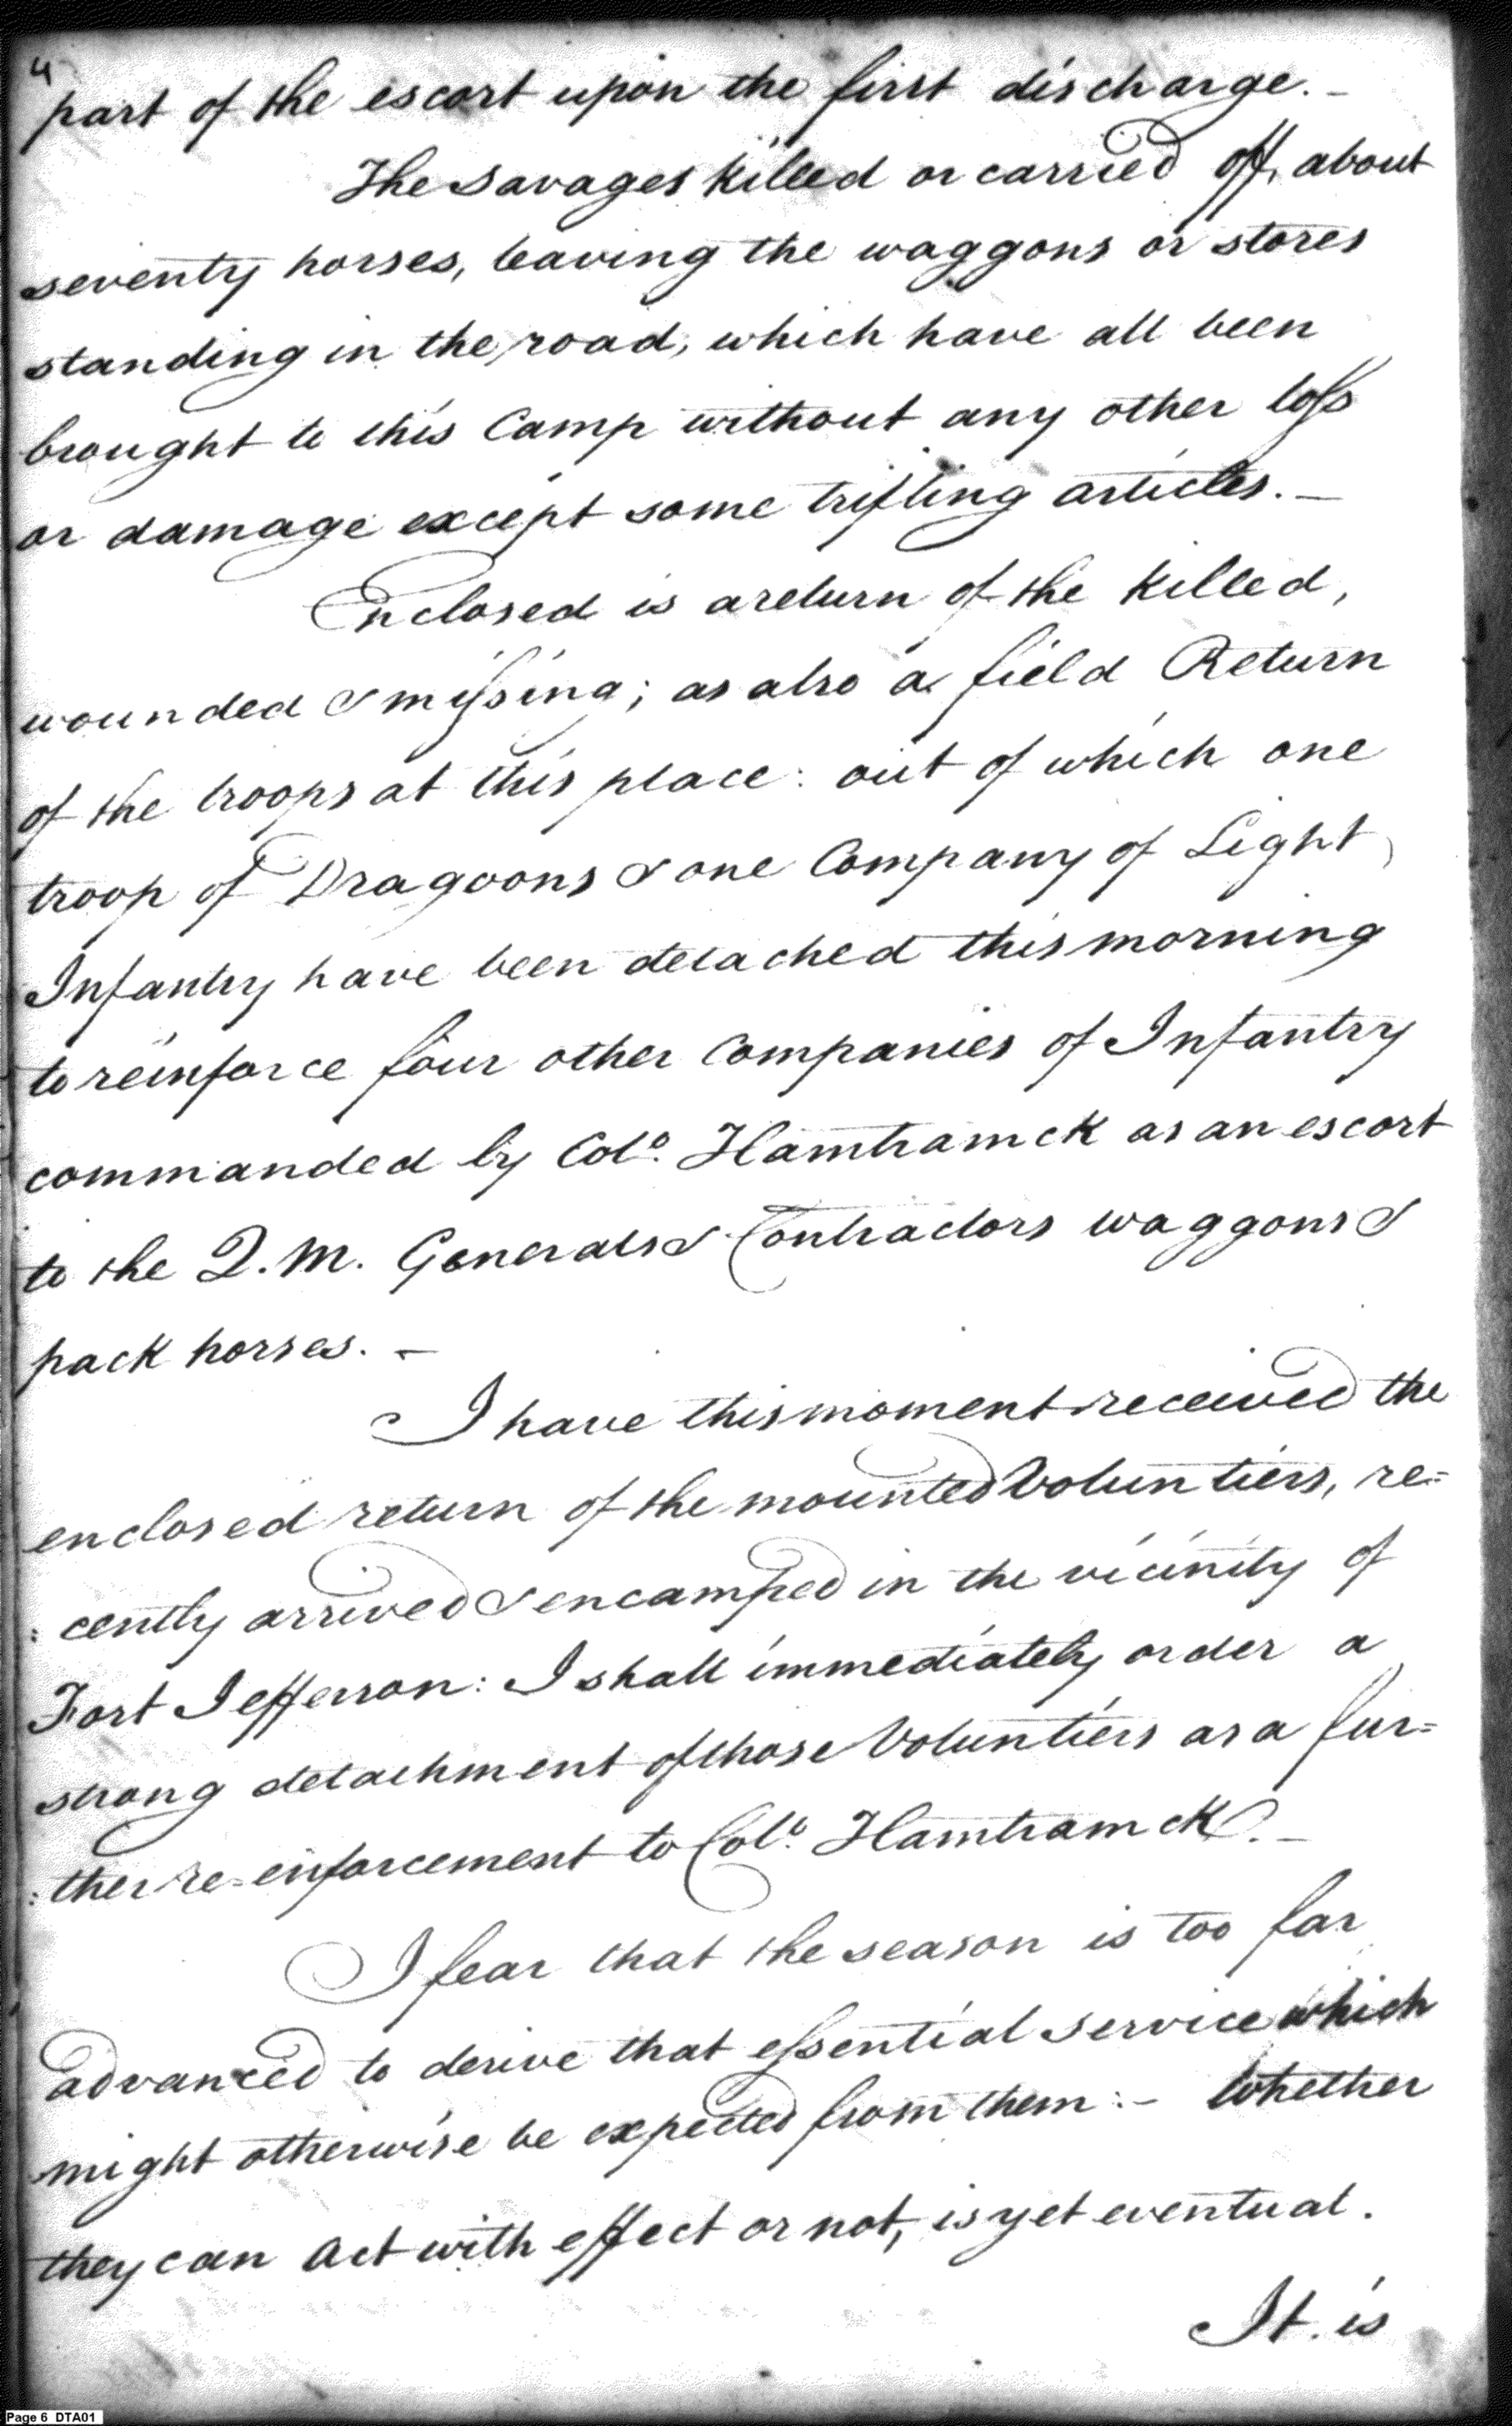 4
part of the escort upon the first discharge. –
The savages killed or carried off, about
seventy horses, leaving the waggons or stores
standing in the road, which have all been
brought to this Camp without any other loss
or damage except some trifling articles. –
Enclosed is a return of the killed,
wounded & missing; as also a field Return
of the troops at this place: out of which one
troop of Dragoons & one Company of Light
Infantry have been detached this morning
to reinforce four other Companies of Infantry
commanded by Colo. Hamtramck as an escort
to the Q.M. Generals & Contractors waggons &
pack horses. –
I have this moment received the
enclosed return of the mounted Voluntiers, re=
:cently arrived & encamped in the vicinity of
Fort Jefferson: I shall immediately order a
strong detachment of those Voluntiers as a fur=
:ther re=enforcement to Colo. Hamtramck. –
I fear that the season is too far
advanced to derive that essential service which
might otherwise be expected from them:– Whether
they can act with effect or not, is yet eventual.
It is
Page 6 DTA01